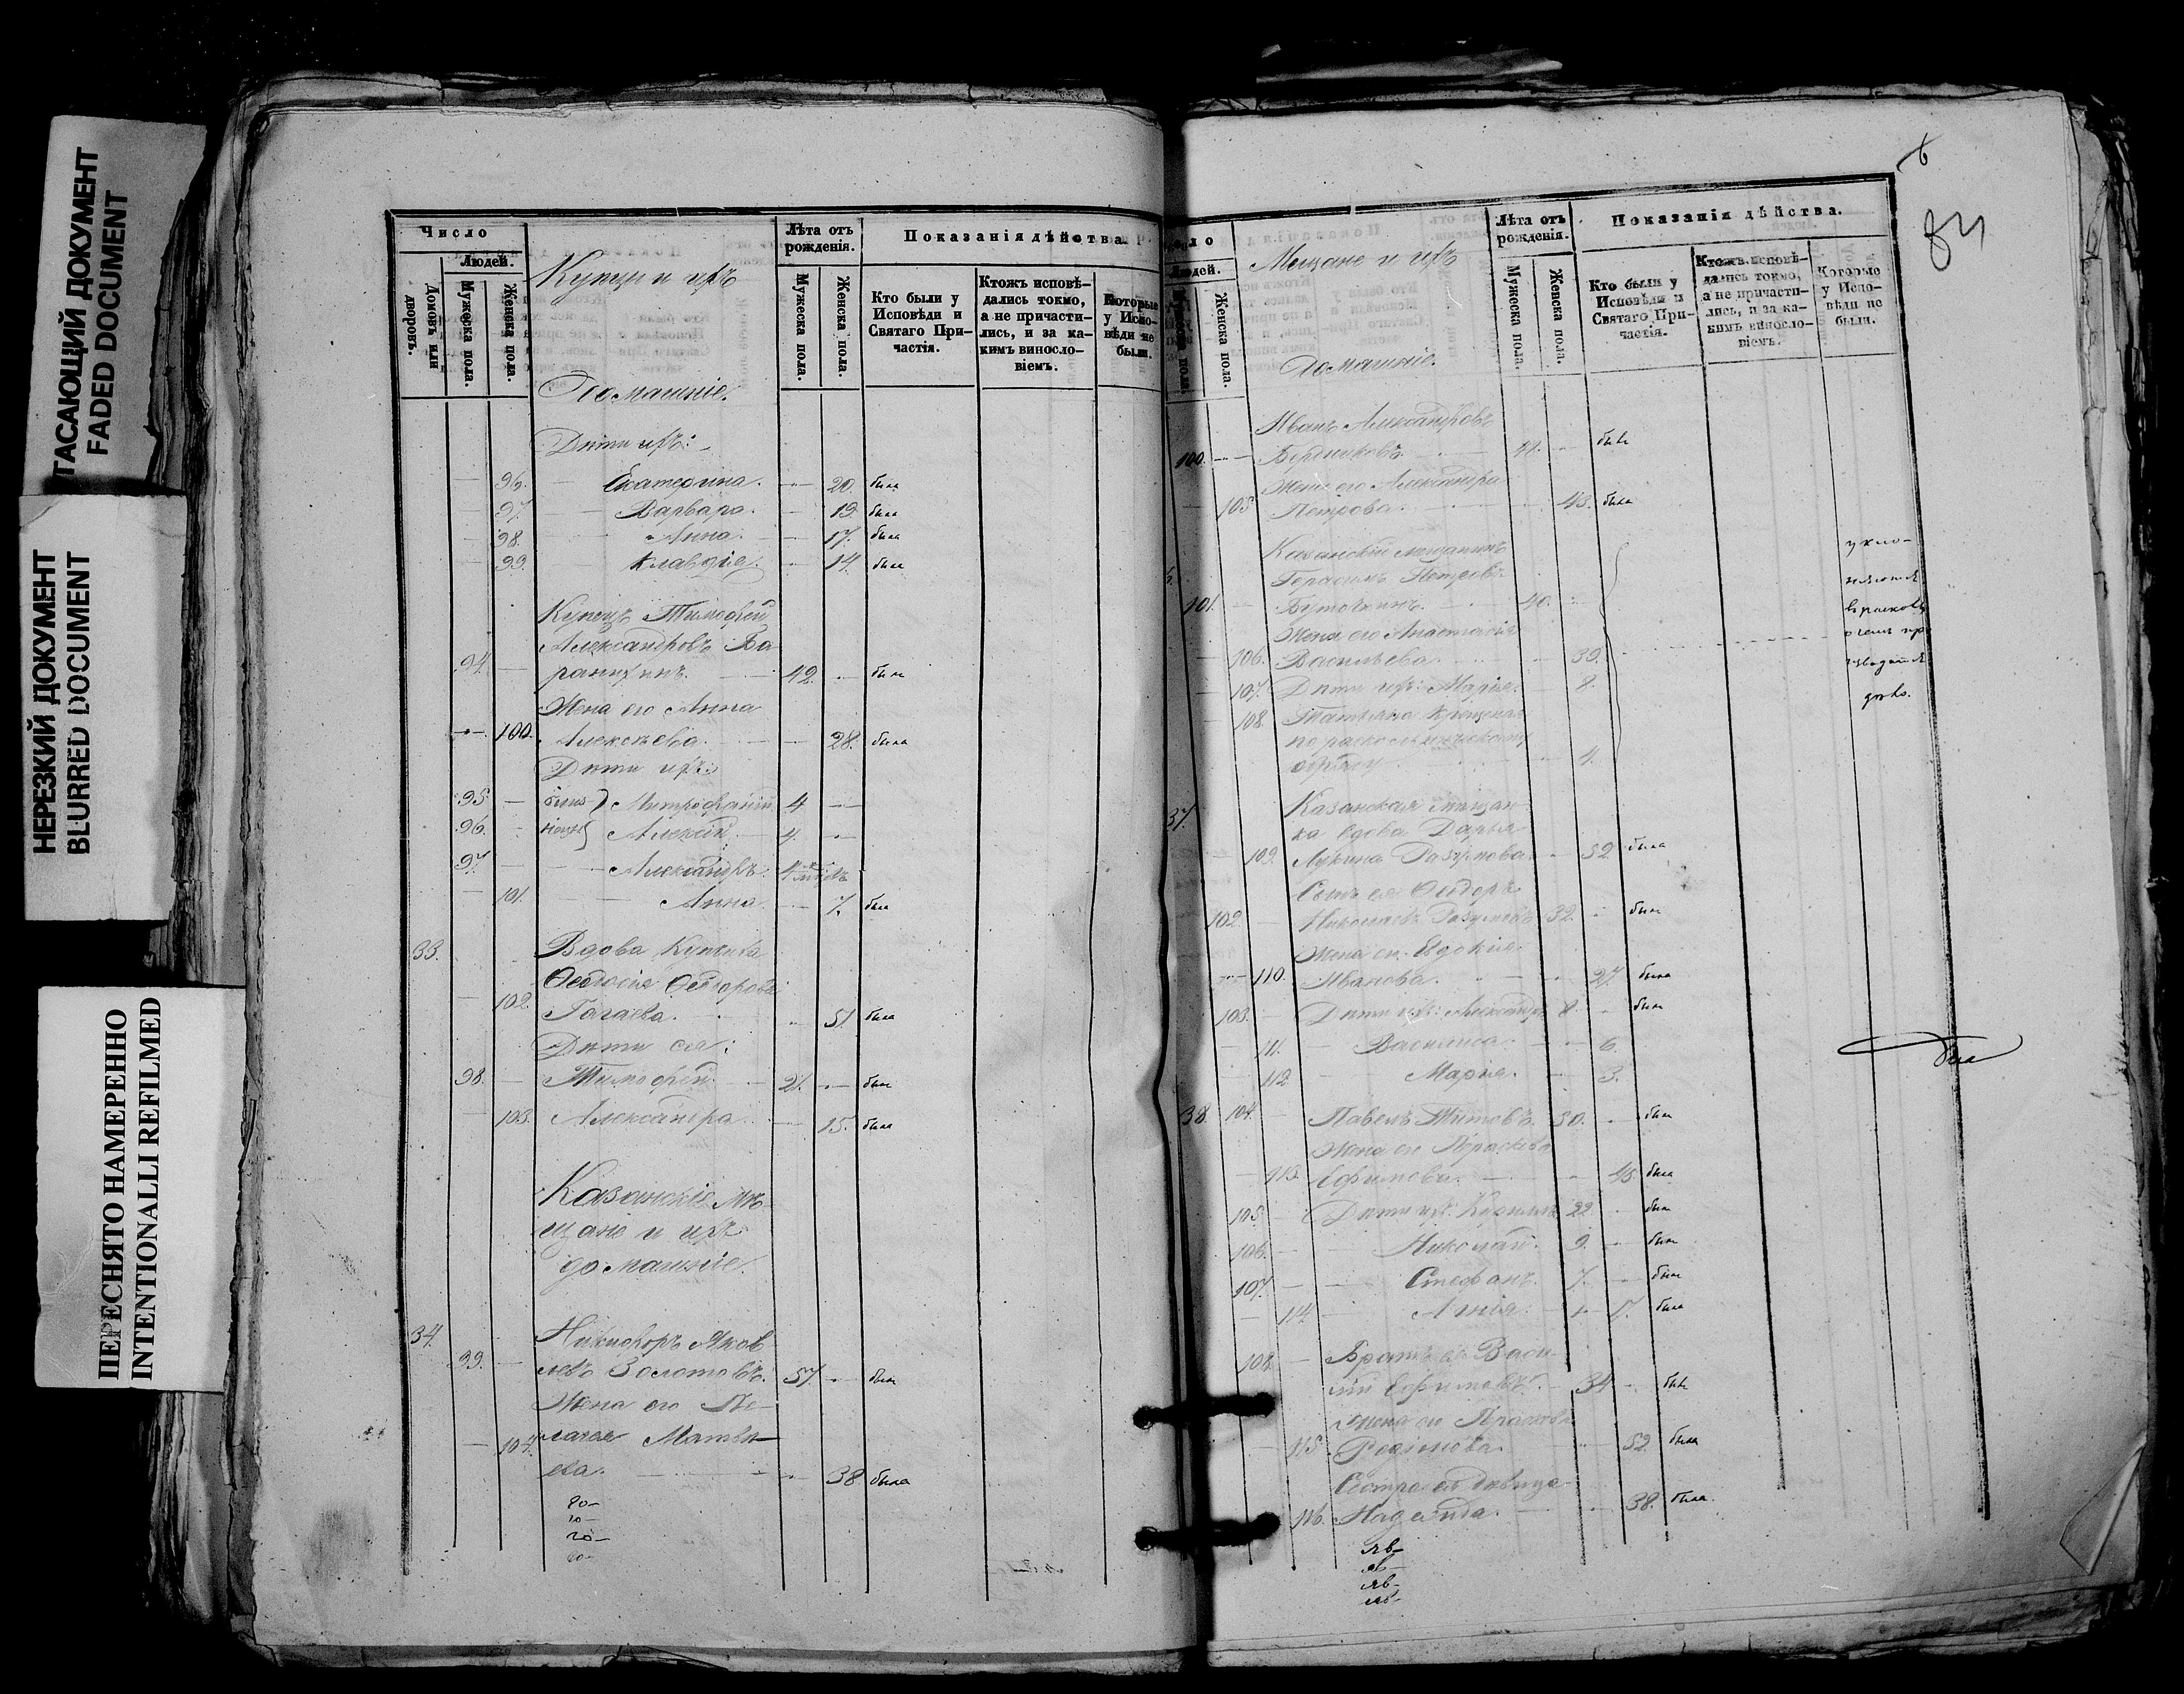 УГАСАЮЩИЙ ДОКУМЕНТ
FADED DOCUMENT
НЕРЕЗКИЙ ДОКУМЕНТ
BLURRED DOCUMENT
ПЕРЕСНЯТО НАМЕРЕННО
INTENTIONALLI REFILMED
Число
Людей.
Домовъ или дворовъ.
Мужеска пола.
Женска пола.
Купцы и ихъ
Домашніе.
Лѣта отъ рожденія.
Мужеска пола.
Женска пола.
Показанія дѣйства.
Кто были у Исповѣди и Святаго Причастія.
Ктожъ исповѣдались токмо, а не причастились, и за какимъ винословіемъ.
Которые у Исповѣди не были.
Дѣти ихъ:
96. Екатерина. 20. была
97. Варвара. 19. была
98. Анна. 17. была
99. Клавдія. 14. была
Купецъ Тимофей
Александровъ Ба
94. 42. былъ
Жена его Анна
100. Алексѣева. 28. была
Дѣти ихъ:
95. Митрофаній 4
96. Алексѣй 4
97. Александръ
101. Анна 7. была
33. Вдова Купчиха
Феодосія Феодорова
102. 51. была
Дѣти ея:
98. Тимофей 21. былъ
103. Александра 15. была
Казанскіе мѣ-
щане и ихъ
домашніе.
34. Никифоръ Яков-
99. левъ Золотовъ. 57. былъ
Жена его Пе-
104. лагея Матвѣ-
ева. 38 была
6
84
Людей.
Женска пола.
Мещане и ихъ
Домашніе.
Лѣта отъ рожденія.
Мужеска пола.
Женска пола.
Показанія дѣйства.
Кто были у Исповѣди и Святаго Причастія.
Ктожъ исповѣдались токмо, а не причастились, и за какимъ винословіемъ.
Которые у Исповѣди не были.
Иванъ Александровъ
100. былъ
Жена его Александра
105 Петрова. 43. была
Казанскій мѣщанинъ
Герасимъ Петровъ
101. 40.
Жена его Анастасія
106. Васильева. 39.
107. Дѣти ихъ: Марья. 8.
108. Татьяна крещена
по раскольническому
обряду 4.
укло-
няются
въ расколъ
о чемъ про
изводится
дѣло.
37. Казанская мѣщан-
ка вдова Дарья
109. Лукина Разумова 52 была
Сынъ ея Феодоръ
102. Николаевъ Разумовъ 32. былъ
Жена его Евдокія
110. Иванова. 27. была
103. Дѣти ихъ: Александръ 8. былъ
111. Василиса 6.
112 Марія. 3.
38. 104. Павелъ Титовъ. 50. былъ
Жена его Параскева
113. Ефимова. 45. была
105. Дѣти ихъ: Кириллъ 22 былъ
106. Николай. 9. былъ
107. Стефанъ. 7. былъ
114. 17. была
108. Братъ его Васи-
лій Ефимовъ. 34 былъ
Жена его Прасковья
115. Родіонова. 52. была
Сестра его дѣвица
116. Надежда. 38. была.